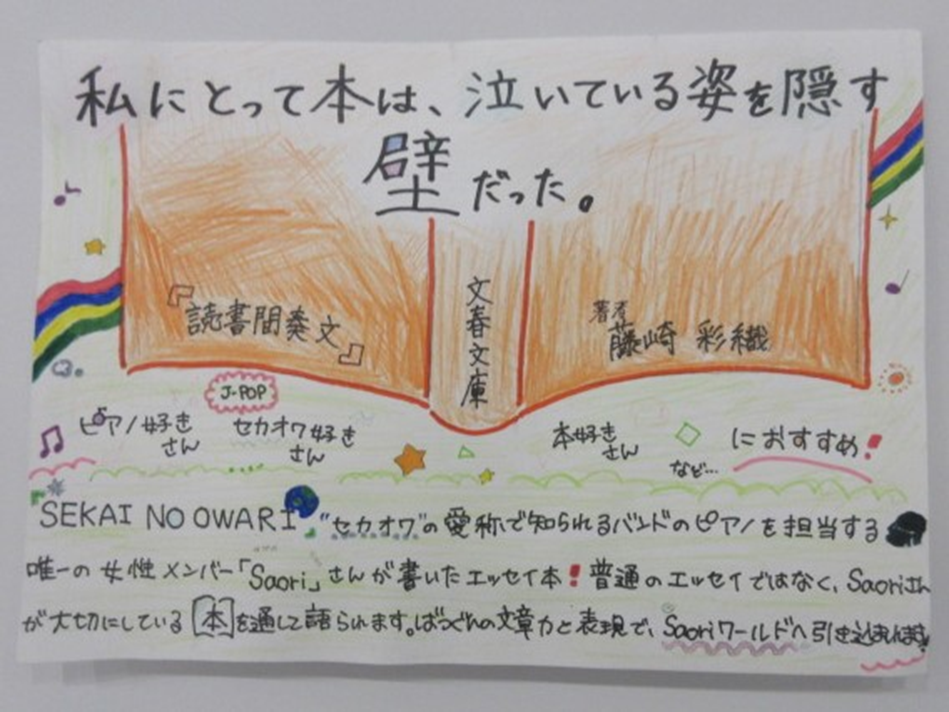 私にとって本は、泣いている姿を隠す
壁だった。
『読書間奏文』
文春文庫
著者
藤崎 彩織
J-POP
ピアノ好き
さん
セカオワ好き
さん
本好き
さん
など…
におすすめ!
SEKAI NO OWARI "セカオワ"の愛称で知られるバンドのピアノを担当する
唯一の女性メンバー「Saori」さんが書いたエッセイ本!普通のエッセイではなく、Saoriさん
が大切にしている[本]を通して語られます。ばつぐんの文章力と表現で、Saoriワールドへ引き込まれます!